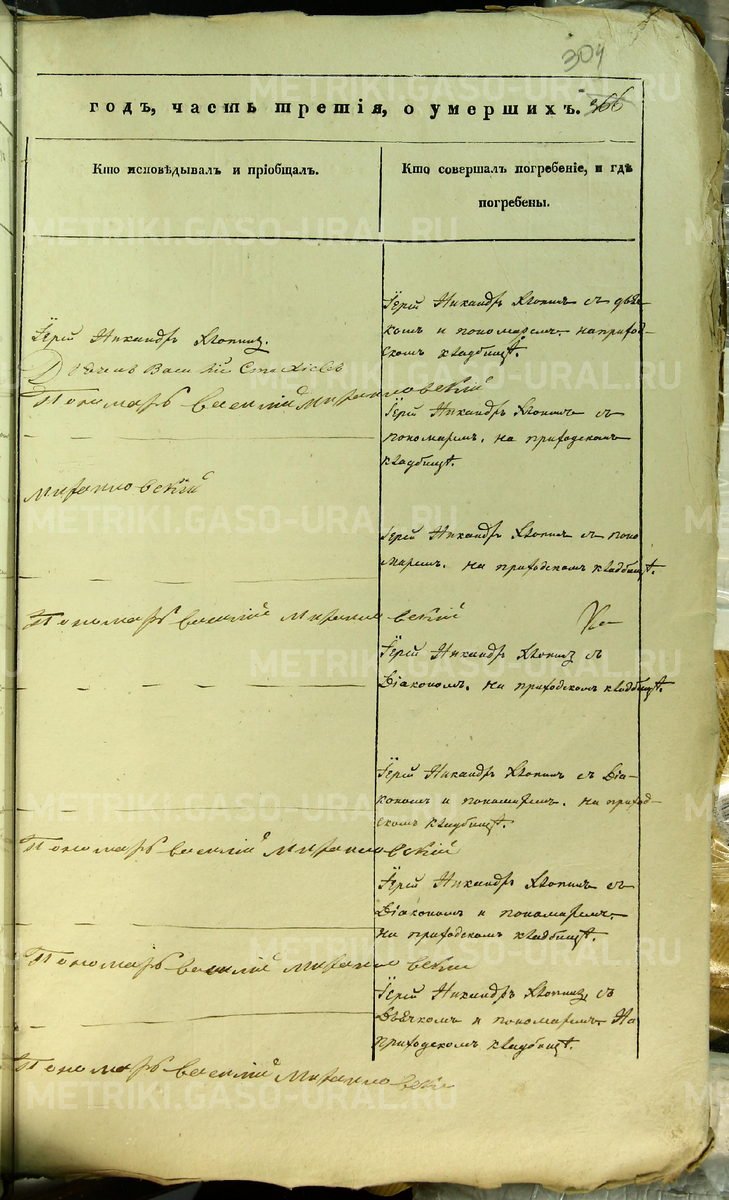 304
годъ, часть третія, о умершихъ. 366
Кто исповѣдывалъ и пріобщалъ.
Кто совершалъ погребеніе, и гдѣ
погребены.
Іерей Никандръ Хлопинъ.
Василій
Пономарь Василий
Іерей Никандръ Хлопинъ съ дья-
комъ и пономаремъ. на приход-
скомъ кладбищѣ.
Іерей Никандръ Хлопинъ съ
пономаремъ. на приходскомъ
кладбищѣ.
Іерей Никандръ Хлопинъ съ поно
маремъ. на приходскомъ кладбищѣ.
Пономарь Василий
Іерей Никандръ Хлопинъ съ
Діакономъ. на приходскомъ кладбищѣ.
Іерей Никандръ Хлопинъ съ Діа-
кономъ и пономаремъ. на приход-
скомъ кладбищѣ.
Пономарь Василий
Іерей Никандръ Хлопинъ съ
Діакономъ и пономаремъ.
на приходскомъ кладбищѣ.
Пономарь Василий
Іерей Никандръ Хлопинъ съ
Дьячкомъ и пономаремъ. На
приходскомъ кладбищѣ.
Пономарь Василий
METRIKI.GASO-URAL.RU